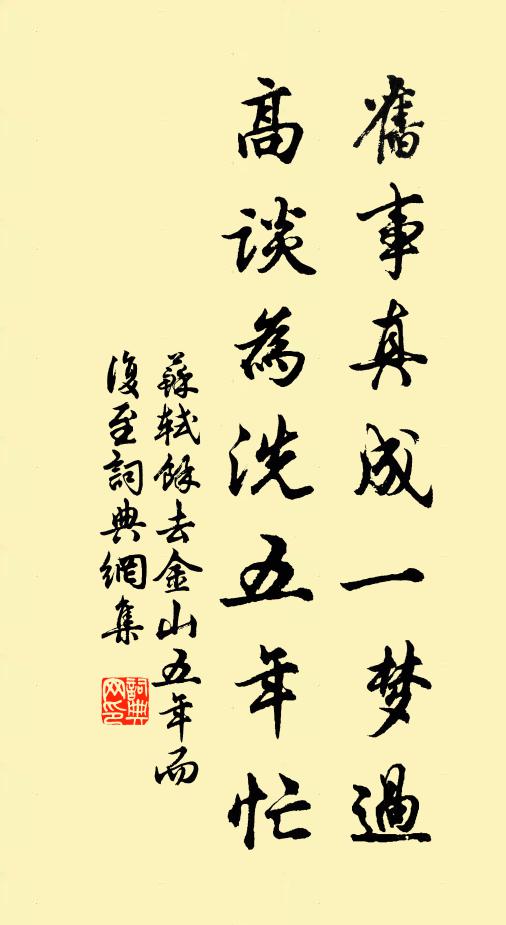 舊事真成一梦過
高談為洗五年忙
蘇軾餘去金山五年而
復至詞典網集
詞典
网印